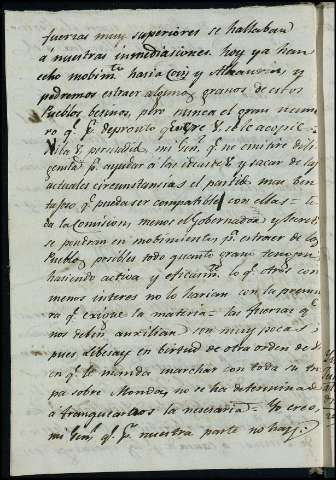 fuerzas muy superiores se hallaban
á nuestras inmediasiones. hoy ya han
echo mobim.to hasia Coin y Alhaurin, y
podremos estraer algunos granos de estos
Pueblos besinos, pero nunca el gran nume
ro q.e p.r depronto quiere
q.e no omitire dili
gencia p.a ayudar á las ideas de V. y sacar de las
actuales circunstansias el partido mas ben
tajoso q.e pueda ser compatible con ellas = to
da la Comision, menos el Gobernador y Secret.o
se pondran en mobimiento, p.a estraer de los
Pueblos posibles todo quanto grano tengan
hasiendo activa y eficasm.te lo q.e otros con
menos interes no lo harian con la premu
ra q.e exige la materia = las fuerzas q.e
nos deben auxiliar son muy pocas,
pues en birtud de otra orden de V.
en q.e le manda marchar con toda su tro
pa sobre Monda, no se ha determinado
á franquearnos la nesesaria = Yo creo,
mi Gen.l q.e p.r nuestra parte no hay